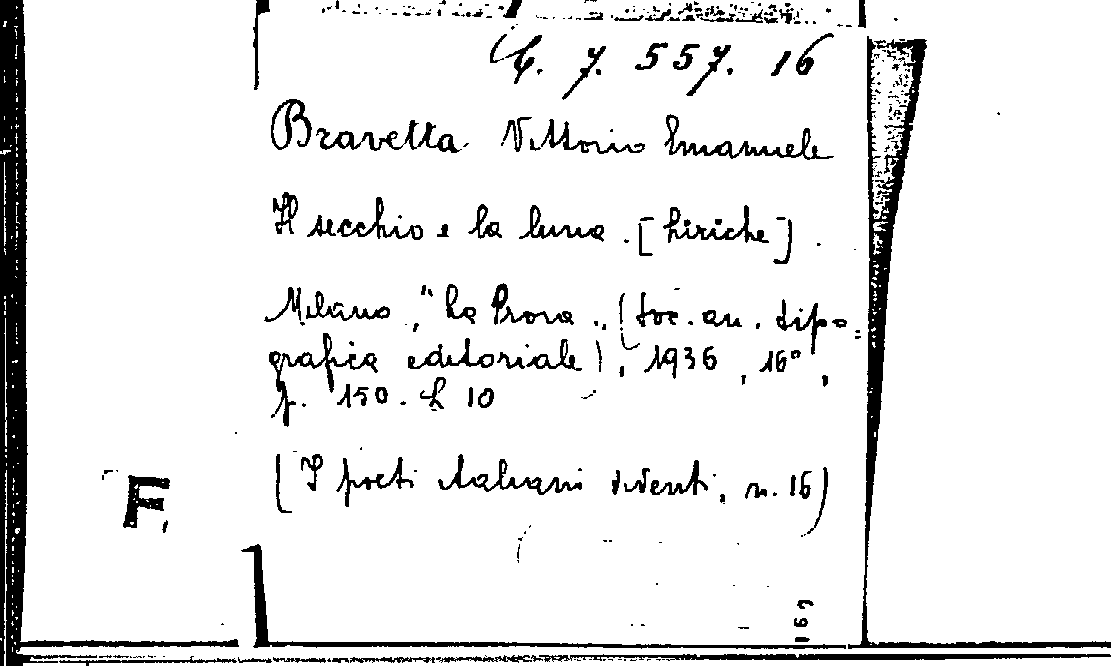 C. 7. 557. 16
Bravetta Vittorio Emanuele
Il secchio e la luna. [Liriche].
Milano, "La Prora", (Soc. an. tipo=
grafica editoriale), 1936, 16°,
p. 150. L 10
(I poeti italiani viventi, n. 16)
F.
169